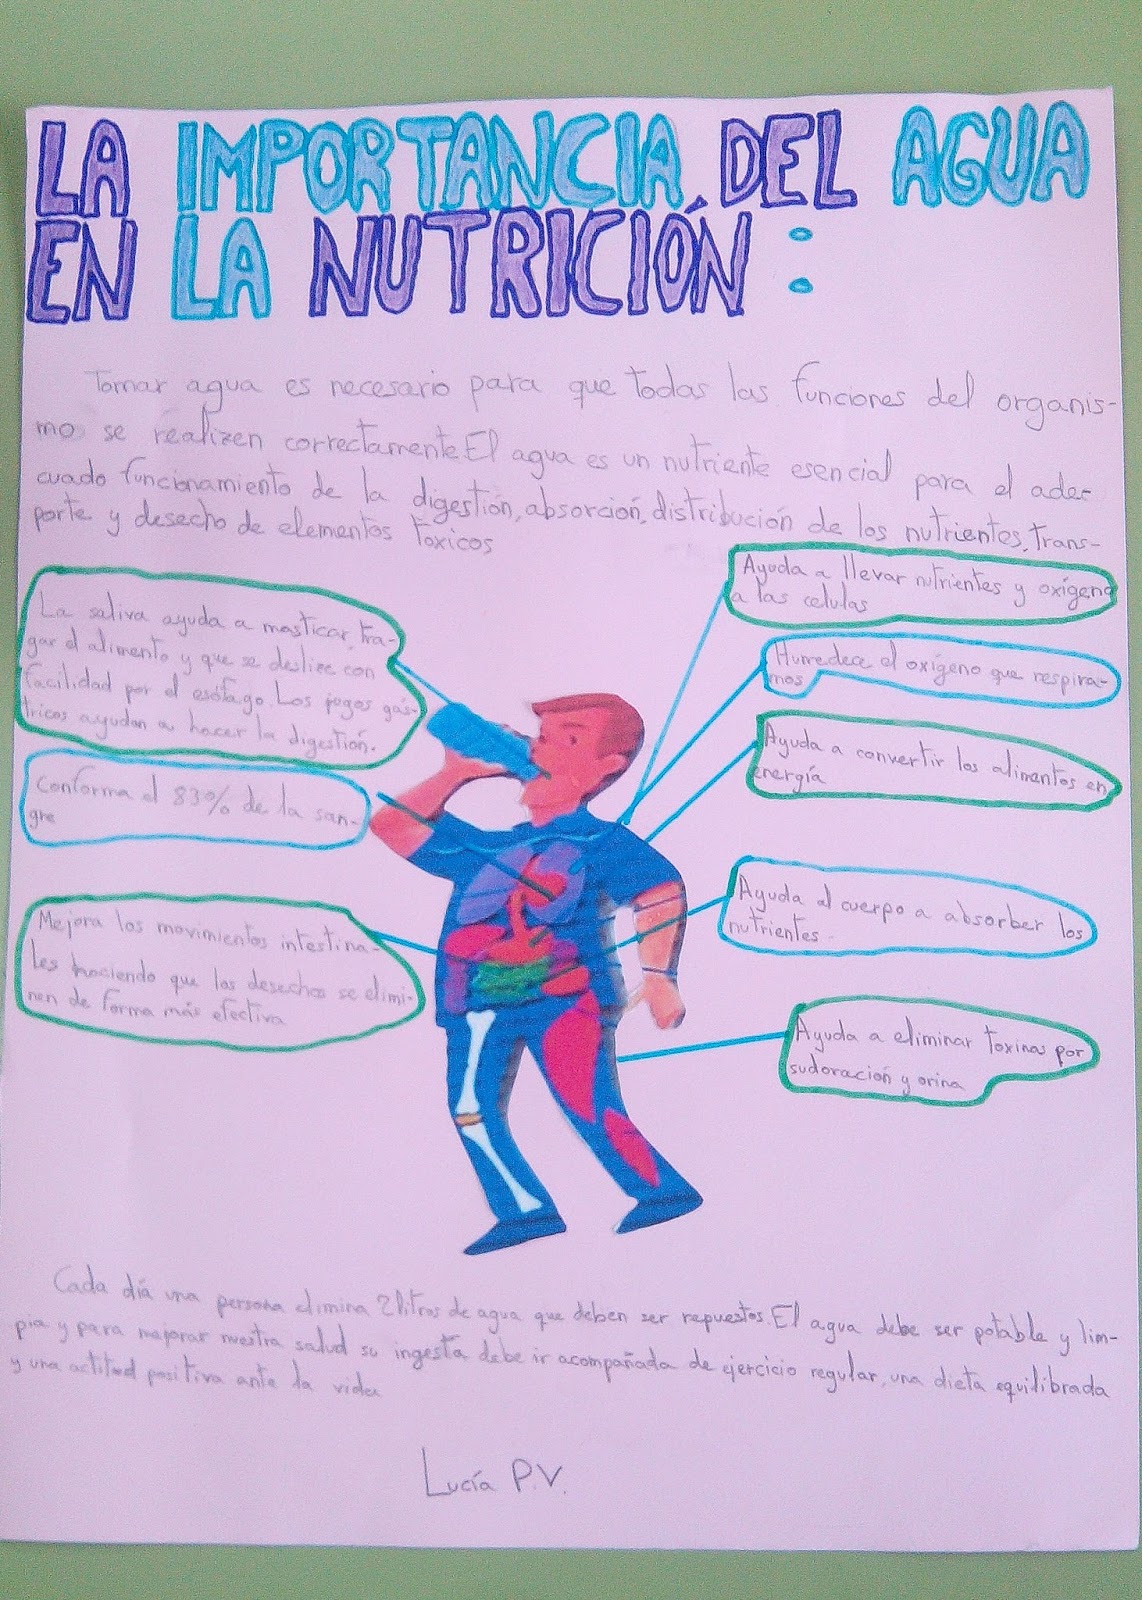 LA IMPORTANCIA DEL AGUA
EN LA NUTRICIÓN :
Tomar agua es necesario para que todas las funciones del organis-
mo se realizen correctamente. El agua es un nutriente esencial para el ade-
cuado funcionamiento de la digestión, absorción, distribución de los nutrientes, trans-
porte y desecho de elementos toxicos
La saliva ayuda a masticar, tra-
gar el alimento y que se deslice con
facilidad por el esófago. Los jugos gás-
tricos ayudan a hacer la digestión.
Conforma el 83% de la san-
gre
Mejora los movimientos intestina-
les haciendo que los desechos se elimi-
nen de forma más efectiva
Ayuda a llevar nutrientes y oxígeno
a las celulas
Humedece el oxígeno que respira-
mos
Ayuda a convertir los alimentos en
energía
Ayuda al cuerpo a absorber los
nutrientes
Ayuda a eliminar toxinas por
sudoración y orina
Cada día una persona elimina 2 litros de agua que deben ser repuestos. El agua debe ser potable y lim-
pia y para mejorar nuestra salud su ingesta debe ir acompañada de ejercicio regular, una dieta equilibrada
y una actitud positiva ante la vida
Lucía P.V.